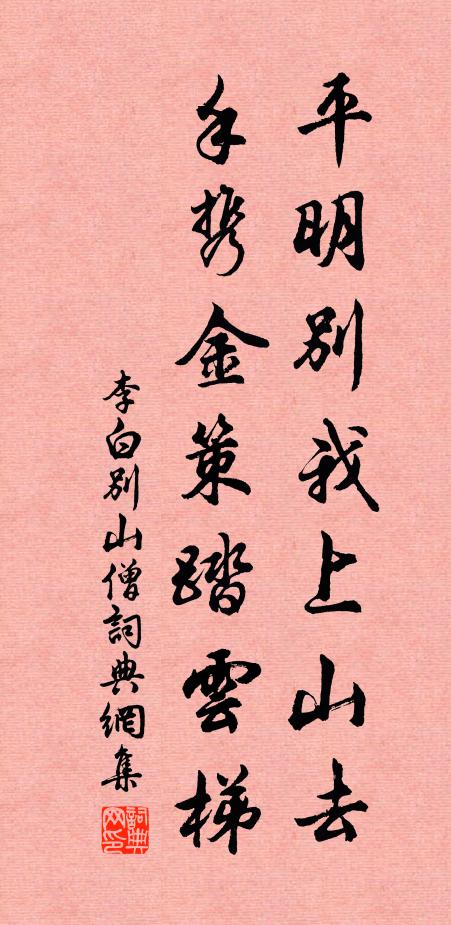 平明別我上山去
手攜金策踏雲梯
李白別山僧詞典網集
詞典网印